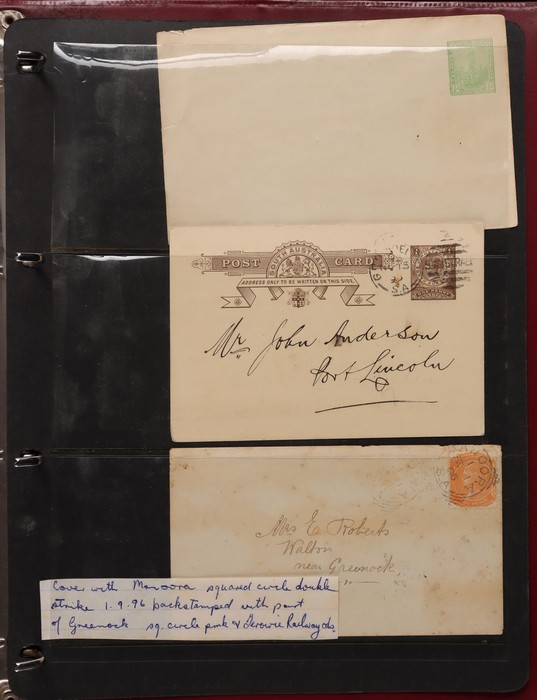 POST CARD
SOUTH AUSTRALIA
ADDRESS ONLY TO BE WRITTEN ON THIS SIDE.
S.A.
Mr John Anderson
Port Lincoln
Mrs E Roberts
Walton
near Greenock
Cover with Manoora squared circle double
strike 1.9.96 backstamped with part
of Greenock sq. circle pmk & Terowie Railway cds.